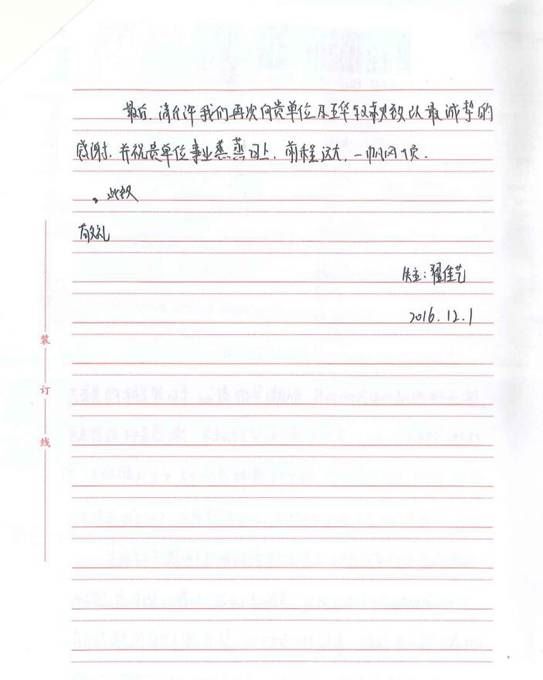 最后,请允许我们再次向贵单位及 致以最诚挚的
感谢,并祝贵单位事业蒸蒸日上,前程远大,一帆风顺.
此致
敬礼
失主:翟佳艺
2016.12.1
装
订
线